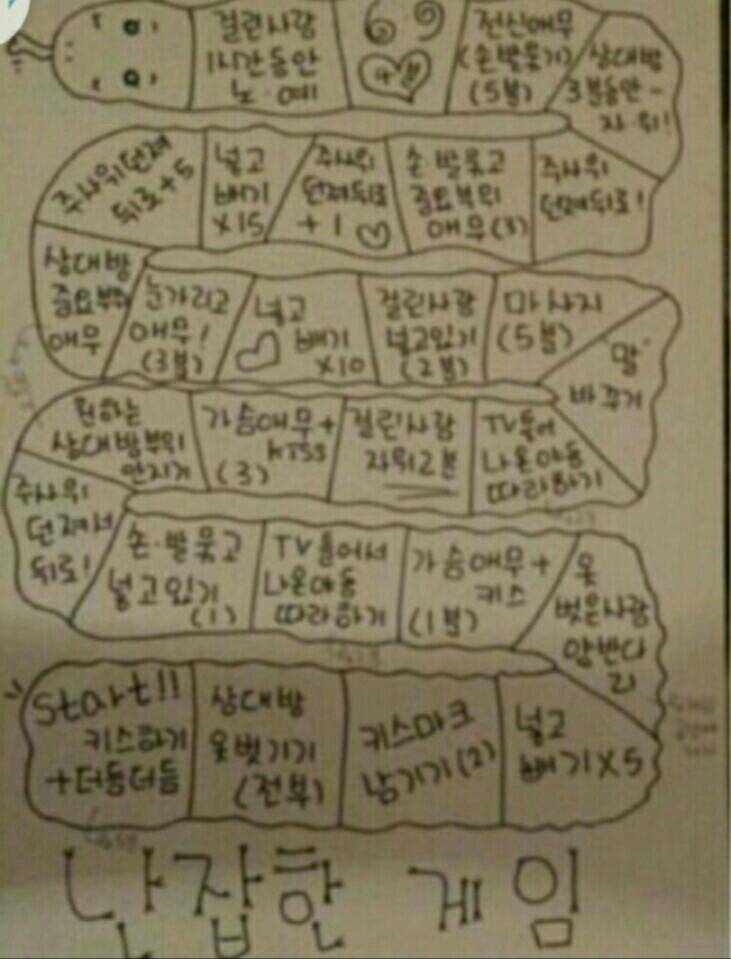 Start!!
키스하기
+더듬더듬
상대방
옷벗기기
(전부)
키스마크
남기기(2)
넣고
빼기X5
옷
벗은사람
앉반다
리
가슴애무+
키스
(1분)
TV틀어서
나온야동
따라하기
손·발묶고
넣고있기
(1)
주사위
던져서
뒤로!
원하는
상대방부위
만지기
가슴애무+
kiss
(3)
걸린사람
자위2분
TV틀어
나온야동
따라하기
"말"
바꾸기
마사지
(5분)
걸린사람
넣고있기
(2분)
넣고
빼기
X10
눈가리고
애무!
(3분)
상대방
중요부위
애무
주사위던져
뒤로+5
넣고
빼기
X15
주사위
던져뒤로
+1
손·발묶고
중요부위
애무(3)
주사위
던져뒤로!
상대방
3분동안-
자·위!
전신애무
(손발묶기)
(5분)
69
걸린사람
1시간동안
노·예
난잡한 게임